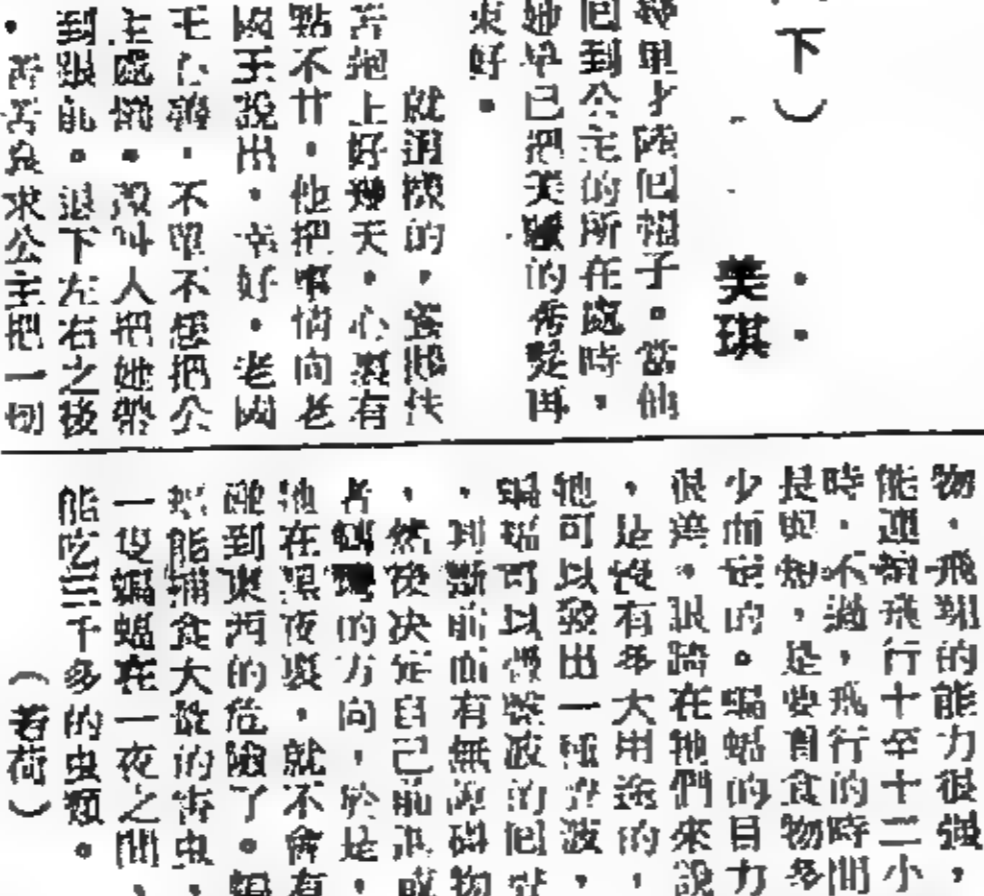 （下）
美琪
幾里才陸回帽子。當他
回到公主的所在處時，
她早已把美麗的秀髮再
束好。
就這樣的，蜜月般快
苦抱上好幾天。心裏有
點不甘，他把事情向老
國王說出，幸好，老國
王心善，不單不怪把公
主處懲，還叫人把她帶
到跟前。退下左右之後
，苦苦哀求公主把一切
物，飛翔的能力很強，
能連續飛行十至十二小
時，不過，飛行的時間
長與短，是要看食物多
少而定的。蝙蝠的目力
很差，眼睛在牠們來說
，是沒有多大用途的，
牠可以發出一種音波，
蝙蝠可以憑聲波的回
，判斷前面有無障礙物
，然後決定自己前進或
者 的方向，於是，
牠在黑夜裏，就不會有
碰到東西的危險了。蝙
蝠能捕食大量的害虫，
一隻蝙蝠在一夜之間，
能吃三千多的虫類。
（若荷）